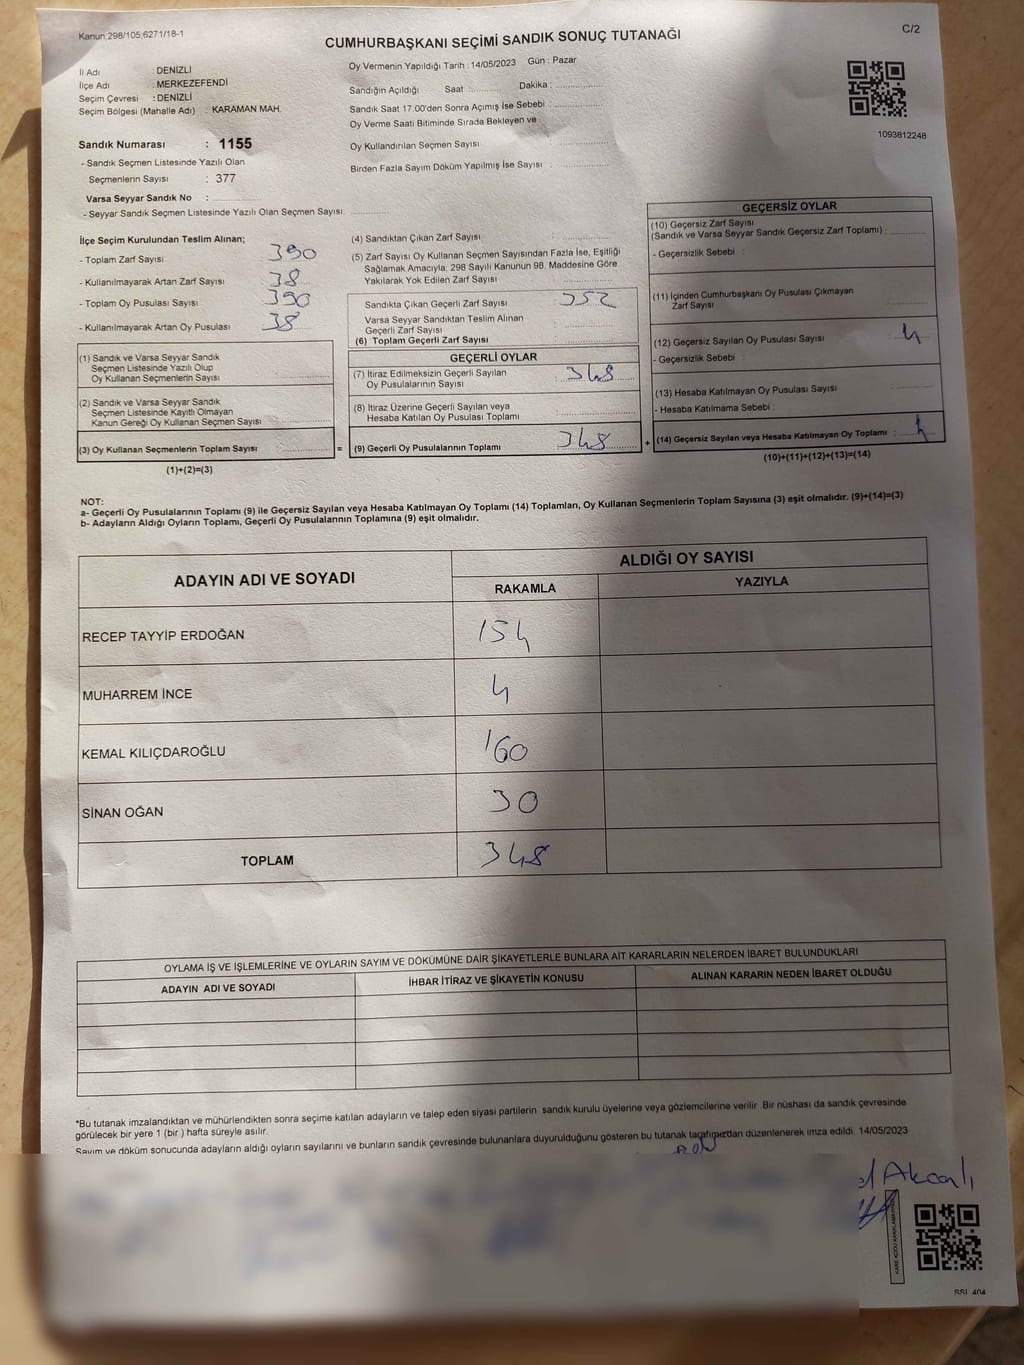 Kanun:298/105,6271/18-1
C/2
CUMHURBAŞKANI SEÇİMİ SANDIK SONUÇ TUTANAĞI
İl Adı : DENİZLİ
İlçe Adı : MERKEZEFENDİ
Seçim Çevresi : DENİZLİ
Seçim Bölgesi (Mahalle Adı) : KARAMAN MAH.
Sandık Numarası : 1155
- Sandık Seçmen Listesinde Yazılı Olan
Seçmenlerin Sayısı : 377
Varsa Seyyar Sandık No :
- Seyyar Sandık Seçmen Listesinde Yazılı Olan Seçmen Sayısı:
Oy Vermenin Yapıldığı Tarih : 14/05/2023 Gün : Pazar
Sandığın Açıldığı Saat : Dakika :
Sandık Saat 17:00'den Sonra Açımış İse Sebebi :
Oy Verme Saati Bitiminde Sırada Bekleyen ve
Oy Kullandırılan Seçmen Sayısı :
Birden Fazla Sayım Döküm Yapılmış İse Sayısı :
1093812248
İlçe Seçim Kurulundan Teslim Alınan;
- Toplam Zarf Sayısı : 390
- Kullanılmayarak Artan Zarf Sayısı : 38
- Toplam Oy Pusulası Sayısı : 390
- Kullanılmayarak Artan Oy Pusulası : 38
(1) Sandık ve Varsa Seyyar Sandık
Seçmen Listesinde Yazılı Olup
Oy Kullanan Seçmenlerin Sayısı :
(2) Sandık ve Varsa Seyyar Sandık
Seçmen Listesinde Kayıtlı Olmayan
Kanun Gereği Oy Kullanan Seçmen Sayısı :
(3) Oy Kullanan Seçmenlerin Toplam Sayısı :
(1)+(2)=(3)
(4) Sandıktan Çıkan Zarf Sayısı :
(5) Zarf Sayısı Oy Kullanan Seçmen Sayısından Fazla İse, Eşitliği
Sağlamak Amacıyla; 298 Sayılı Kanunun 98. Maddesine Göre
Yakılarak Yok Edilen Zarf Sayısı :
Sandıkta Çıkan Geçerli Zarf Sayısı : 352
Varsa Seyyar Sandıktan Teslim Alınan
Geçerli Zarf Sayısı :
(6) Toplam Geçerli Zarf Sayısı :
GEÇERLİ OYLAR
(7) İtiraz Edilmeksizin Geçerli Sayılan
Oy Pusulalarının Sayısı : 348
(8) İtiraz Üzerine Geçerli Sayılan veya
Hesaba Katılan Oy Pusulası Toplamı :
= (9) Geçerli Oy Pusulalarının Toplamı : 348
GEÇERSİZ OYLAR
(10) Geçersiz Zarf Sayısı
(Sandık ve Varsa Seyyar Sandık Geçersiz Zarf Toplamı) :
- Geçersizlik Sebebi :
(11) İçinden Cumhurbaşkanı Oy Pusulası Çıkmayan
Zarf Sayısı :
(12) Geçersiz Sayılan Oy Pusulası Sayısı : 4
- Geçersizlik Sebebi :
(13) Hesaba Katılmayan Oy Pusulası Sayısı :
- Hesaba Katılmama Sebebi :
+ (14) Geçersiz Sayılan veya Hesaba Katılmayan Oy Toplamı : 4
(10)+(11)+(12)+(13)=(14)
NOT:
a- Geçerli Oy Pusulalarının Toplamı (9) ile Geçersiz Sayılan veya Hesaba Katılmayan Oy Toplamı (14) Toplamları, Oy Kullanan Seçmenlerin Toplam Sayısına (3) eşit olmalıdır. (9)+(14)=(3)
b- Adayların Aldığı Oyların Toplamı, Geçerli Oy Pusulalarının Toplamına (9) eşit olmalıdır.
ADAYIN ADI VE SOYADI
ALDIĞI OY SAYISI
RAKAMLA YAZIYLA
RECEP TAYYİP ERDOĞAN 154
MUHARREM İNCE 4
KEMAL KILIÇDAROĞLU 160
SİNAN OĞAN 30
TOPLAM 348
OYLAMA İŞ VE İŞLEMLERİNE VE OYLARIN SAYIM VE DÖKÜMÜNE DAİR ŞİKAYETLERLE BUNLARA AİT KARARLARIN NELERDEN İBARET BULUNDUKLARI
ADAYIN ADI VE SOYADI İHBAR İTİRAZ VE ŞİKAYETİN KONUSU ALINAN KARARIN NEDEN İBARET OLDUĞU
*Bu tutanak imzalandıktan ve mühürlendikten sonra seçime katılan adayların ve talep eden siyasi partilerin sandık kurulu üyelerine veya gözlemcilerine verilir. Bir nüshası da sandık çevresinde
görülecek bir yere 1 (bir ) hafta süreyle asılır.
Sayım ve döküm sonucunda adayların aldığı oyların sayılarını ve bunların sandık çevresinde bulunanlara duyurulduğunu gösteren bu tutanak tarafımızdan düzenlenerek imza edildi. 14/05/2023
Akcalı